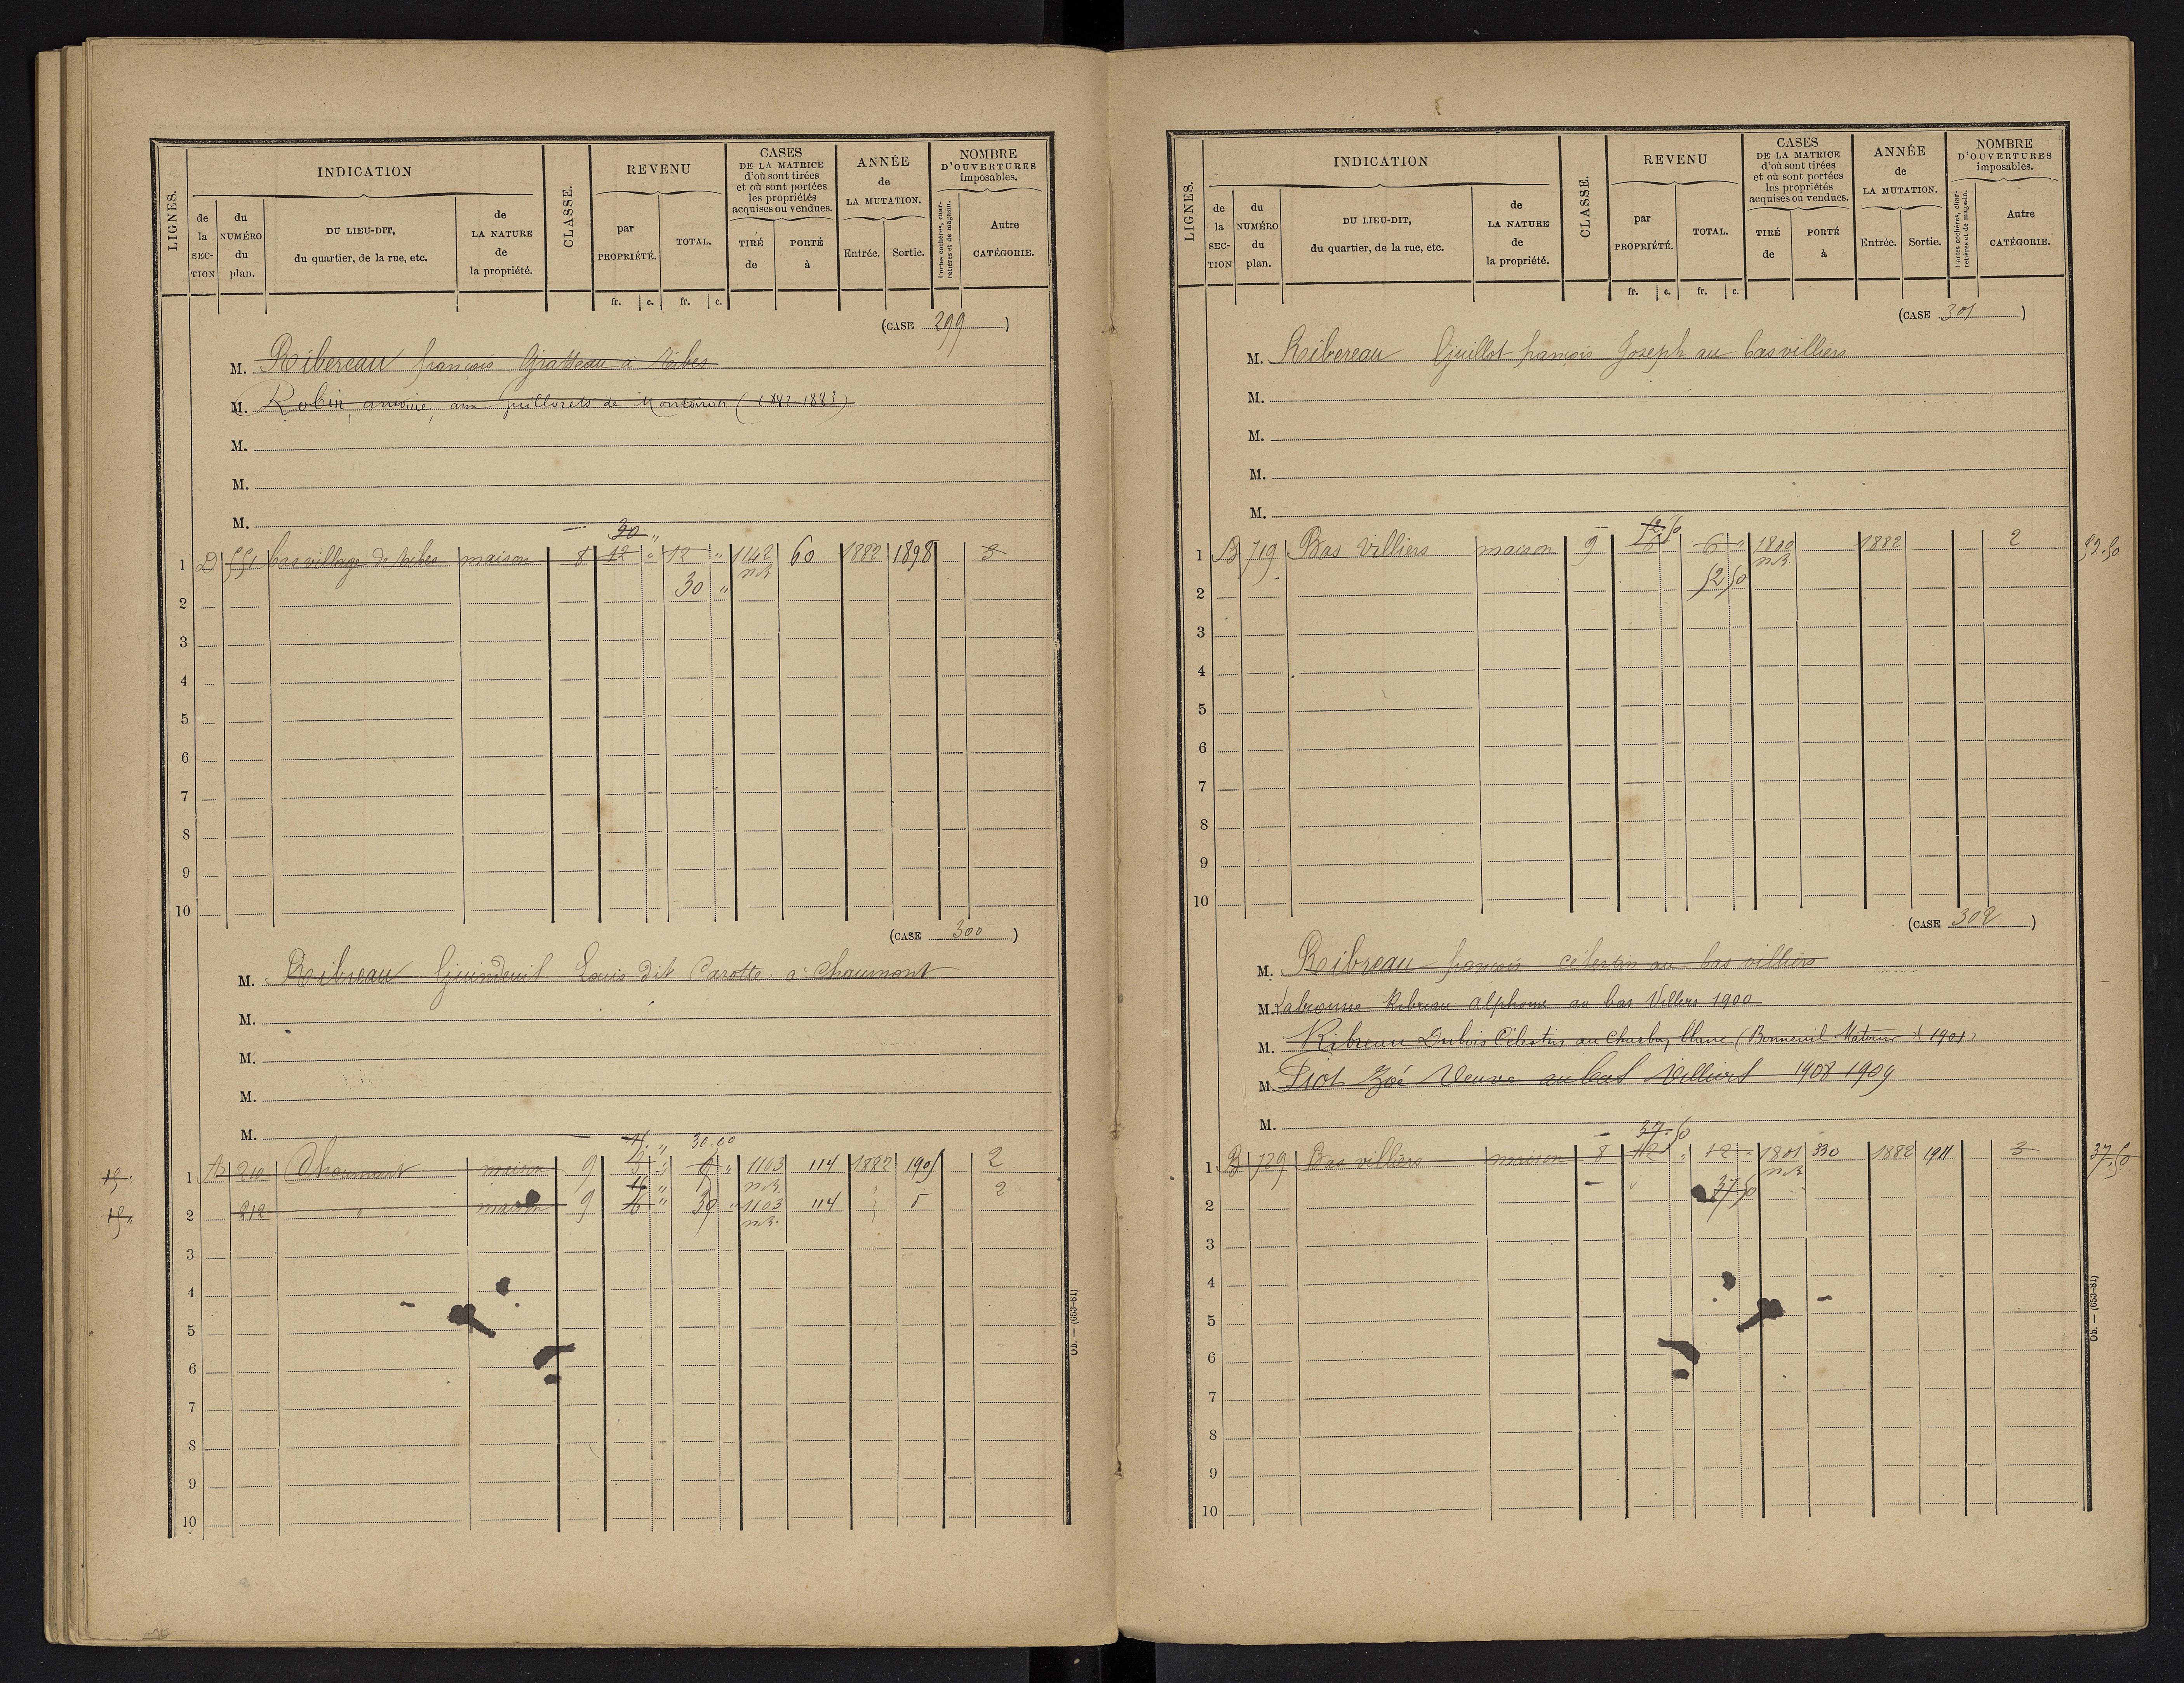 LIGNES.
INDICATION
CLASSE.
REVENU
CASES
DE LA MATRICE
d'où sont tirées
et où sont portées
les propriétés
acquises ou vendues.
ANNÉE
de
LA MUTATION.
NOMBRE
D'OUVERTURES
imposables.
de la SEC-TION
du NUMÉRO du plan.
DU LIEU-DIT,
du quartier, de la rue, etc.
de LA NATURE de la propriété.
par PROPRIÉTÉ.
TOTAL.
TIRÉ de
PORTÉ à
Entrée.
Sortie.
Portes cochères, charretières et de magasin.
Autre CATÉGORIE.
fr. c. fr. c.
(CASE 299)
M. Ribereau françois Gratteau à Ribes
M. Robin, antoine, aux Guillorets de Montoiron (1882-1883)
M.
M.
M.
30 "
1 D 551 bas village de Ribes maison 8 12 " 12 " 1142 60 1882 1898 3
2 30 "
3
4
5
6
7
8
9
10
(CASE 300)
M. Ribreau Guindeuil Louis dit Carotte à Chaumont
M.
M.
M.
M.
30.00
15. 1 210 Chaumont maison 9 1103 114 1882 1905 2
15. 2 212 " maison 9 1103 114 2
3
4
5
6
7
8
9
10
Ob. — (653-81)
LIGNES.
INDICATION
CLASSE.
REVENU
CASES
DE LA MATRICE
d'où sont tirées
et où sont portées
les propriétés
acquises ou vendues.
ANNÉE
de
LA MUTATION.
NOMBRE
D'OUVERTURES
imposables.
de la SEC-TION
du NUMÉRO du plan.
DU LIEU-DIT,
du quartier, de la rue, etc.
de LA NATURE de la propriété.
par PROPRIÉTÉ.
TOTAL.
TIRÉ de
PORTÉ à
Entrée.
Sortie.
Portes cochères, charretières et de magasin.
Autre CATÉGORIE.
fr. c. fr. c.
(CASE 301)
M. Ribereau Guillot françois Joseph au bas villiers
M.
M.
M.
M.
1 B 719 Bas Villiers maison 9 6 " 1800 1882 2 52.50
2 52 50
3
4
5
6
7
8
9
10
(CASE 302)
M. Ribreau françois célestin au bas villiers
M. Labrousse Ribreau alphonse au bas Villers 1900
M. Ribreau Dubois Célestin au blanc (Bonneuil Matours) (1901)
M. Piot Zoé Veuve au bas Villiers 1908 1909
M.
37.50
1 B 729 Bas villiers maison 8 12 " 12 " 1801 330 1882 1911 3 37.50
2 37 50
3
4
5
6
7
8
9
10
Ob. — (653-81)